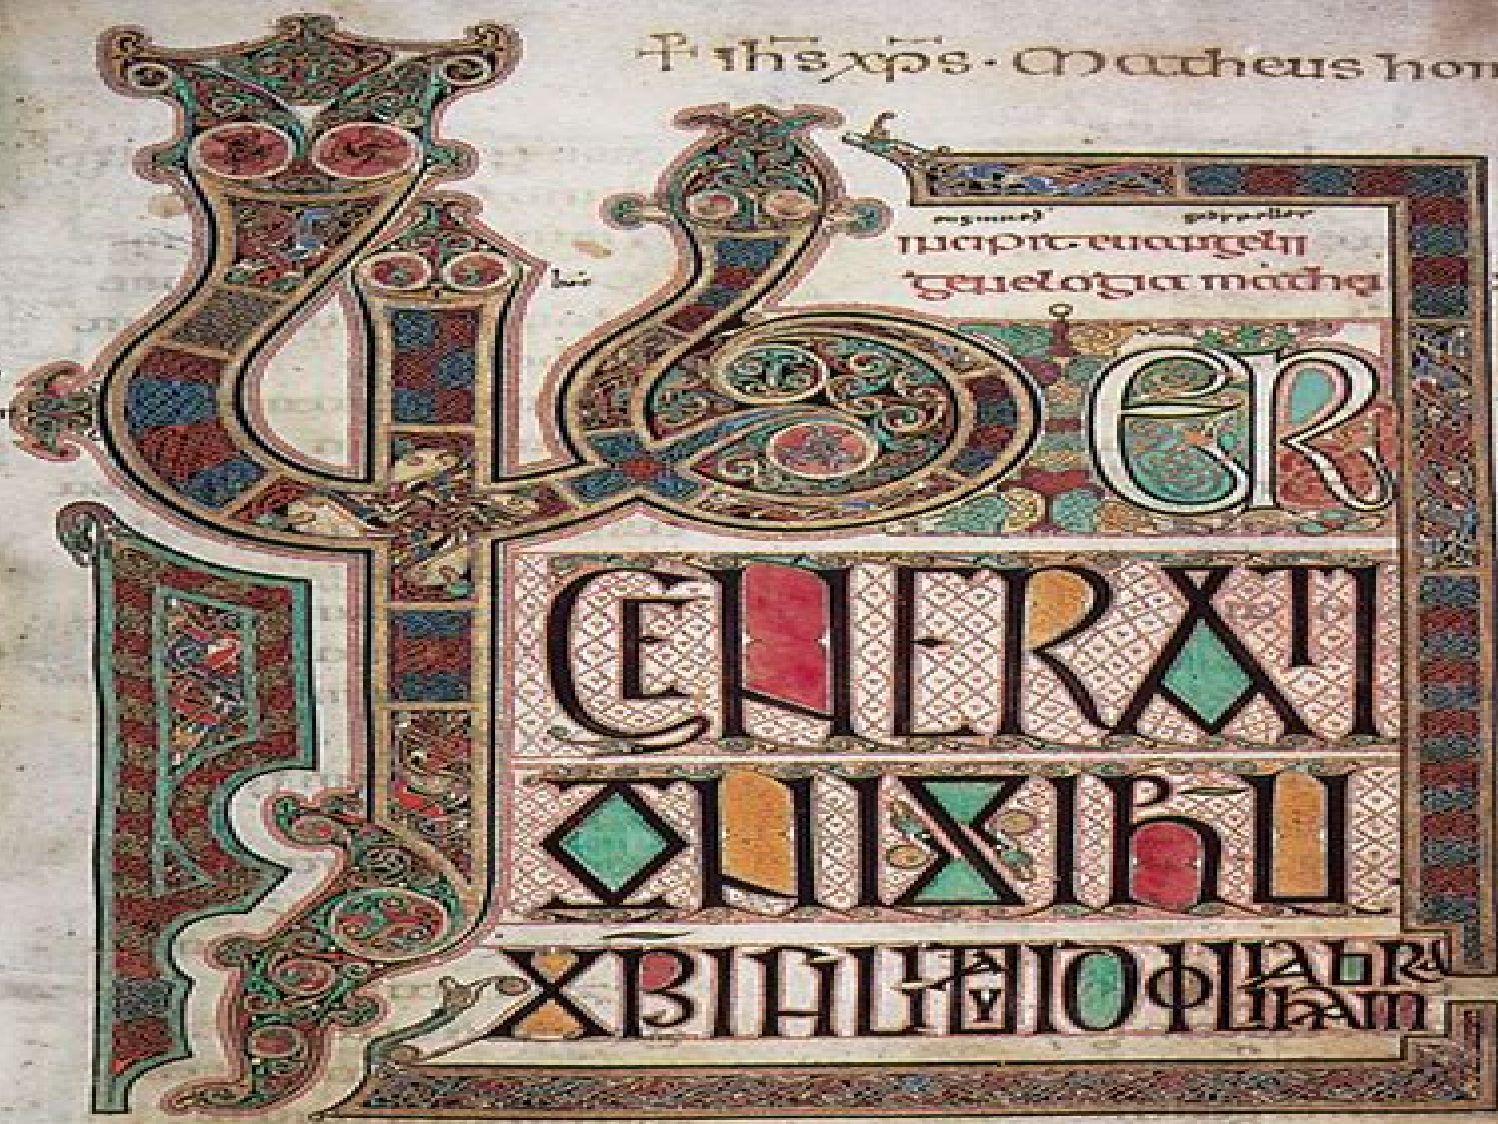 + ihs xps · Matheus hom
incipit euangelii
genelogia mathei
LIBER
GENERATI
ONIS IHU
XPI FILII DAUID FILII ABRAHAM